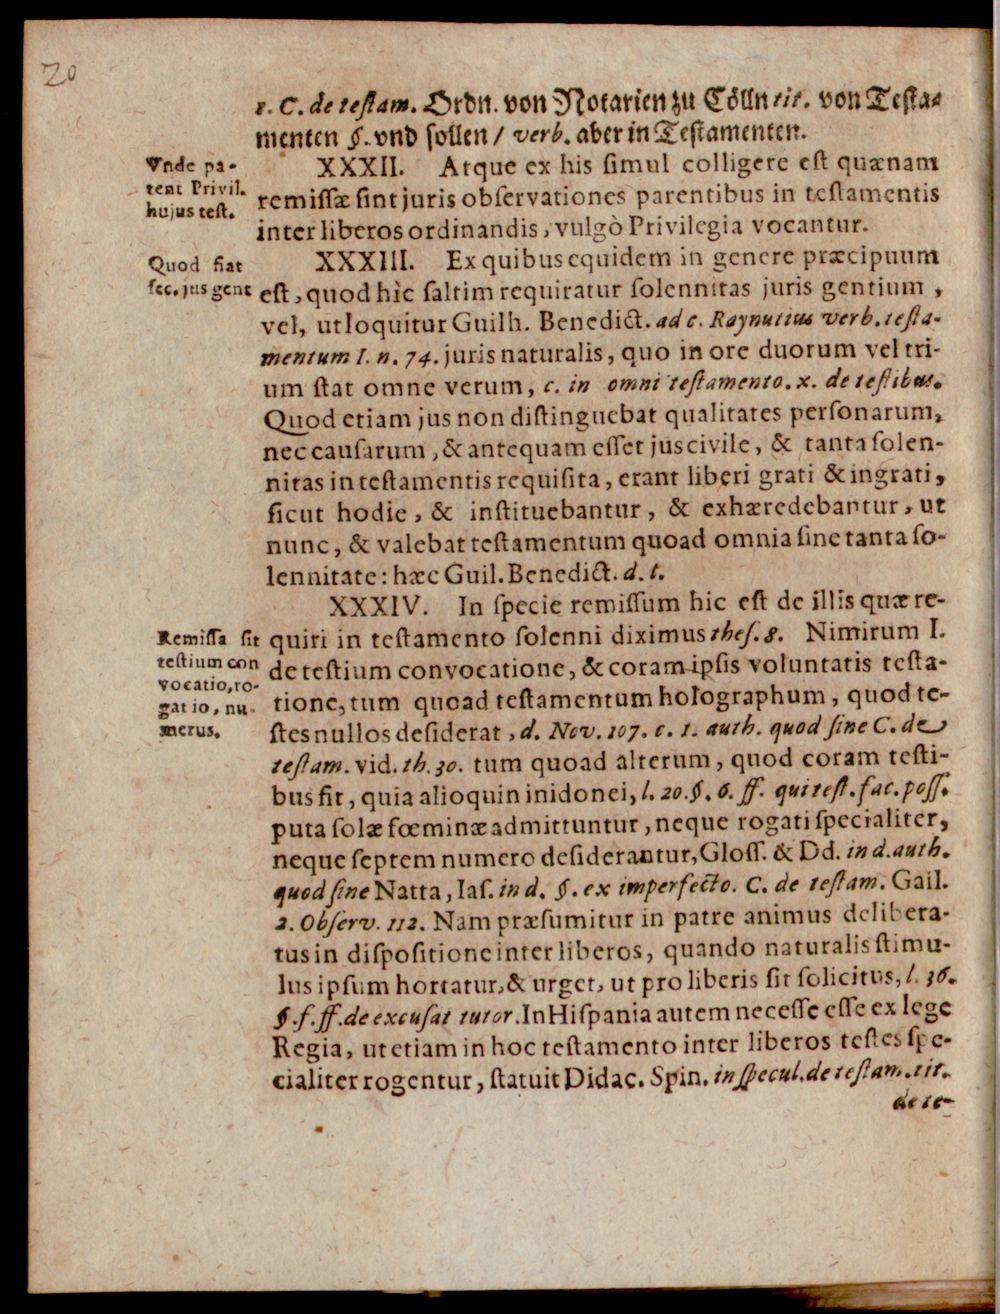 20
1. C. de testam. Ordn. von Notarien zu Cölln tit. von Testa-
menten §. vnd sollen / verb. aber in Testamenten.
Vnde pa-
tent Privil.
hujus test.
XXXII. Atque ex his simul colligere est quænam
remissæ sint juris observationes parentibus in testamentis
inter liberos ordinandis, vulgò Privilegia vocantur.
Quod fiat
sec. jus gent
XXXIII. Ex quibus equidem in genere præcipuum
est, quod hìc saltim requiratur solennitas juris gentium,
vel, ut loquitur Guilh. Benedict. ad c. Raynutius verb. testa-
mentum I. n. 74. juris naturalis, quo in ore duorum vel tri-
um stat omne verum, c. in omni testamento. x. de testibus.
Quod etiam jus non distinguebat qualitates personarum,
nec causarum, & antequam esset jus civile, & tanta solen-
nitas in testamentis requisita, erant liberi grati & ingrati,
sicut hodie, & instituebantur, & exhæredebantur, ut
nunc, & valebat testamentum quoad omnia sine tanta so-
lennitate: hæc Guil. Benedict. d. t.
XXXIV. In specie remissum hic est de illis quæ re-
Remissa sit
testium con
vocatio, ro-
gatio, nu-
merus.
quiri in testamento solenni diximus thes. 8. Nimirum I.
de testium convocatione, & coram ipsis voluntatis testa-
tione, tum quoad testamentum holographum, quod te-
stes nullos desiderat, d. Nov. 107. c. 1. auth. quod sine C. de
testam. vid. th. 30. tum quoad alterum, quod coram testi-
bus fit, quia alioquin inidonei, l. 20. §. 6. ff. qui test. fac. poss.
puta solæ fœminæ admittuntur, neque rogati specialiter,
neque septem numero desiderantur, Gloss. & Dd. in d. auth.
quod sine Natta, Ias. in d. §. ex imperfecto. C. de testam. Gail.
2. Observ. 112. Nam præsumitur in patre animus delibera-
tus in dispositione inter liberos, quando naturalis stimu-
lus ipsum hortatur, & urget, ut pro liberis sit solicitus, l. 36.
§. f. ff. de excusat tutor. In Hispania autem necesse esse ex lege
Regia, ut etiam in hoc testamento inter liberos testes spe-
cialiter rogentur, statuit Didac. Spin. in specul. de testam. tit.
de te-